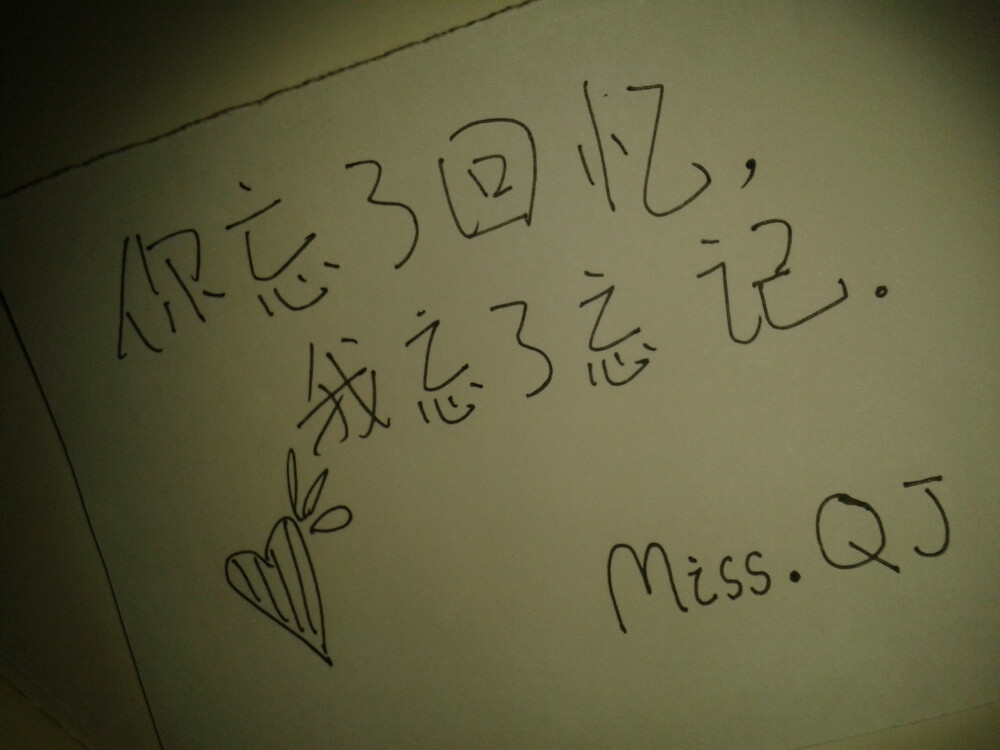 你忘了回忆,
我忘了忘记.
Miss.QJ